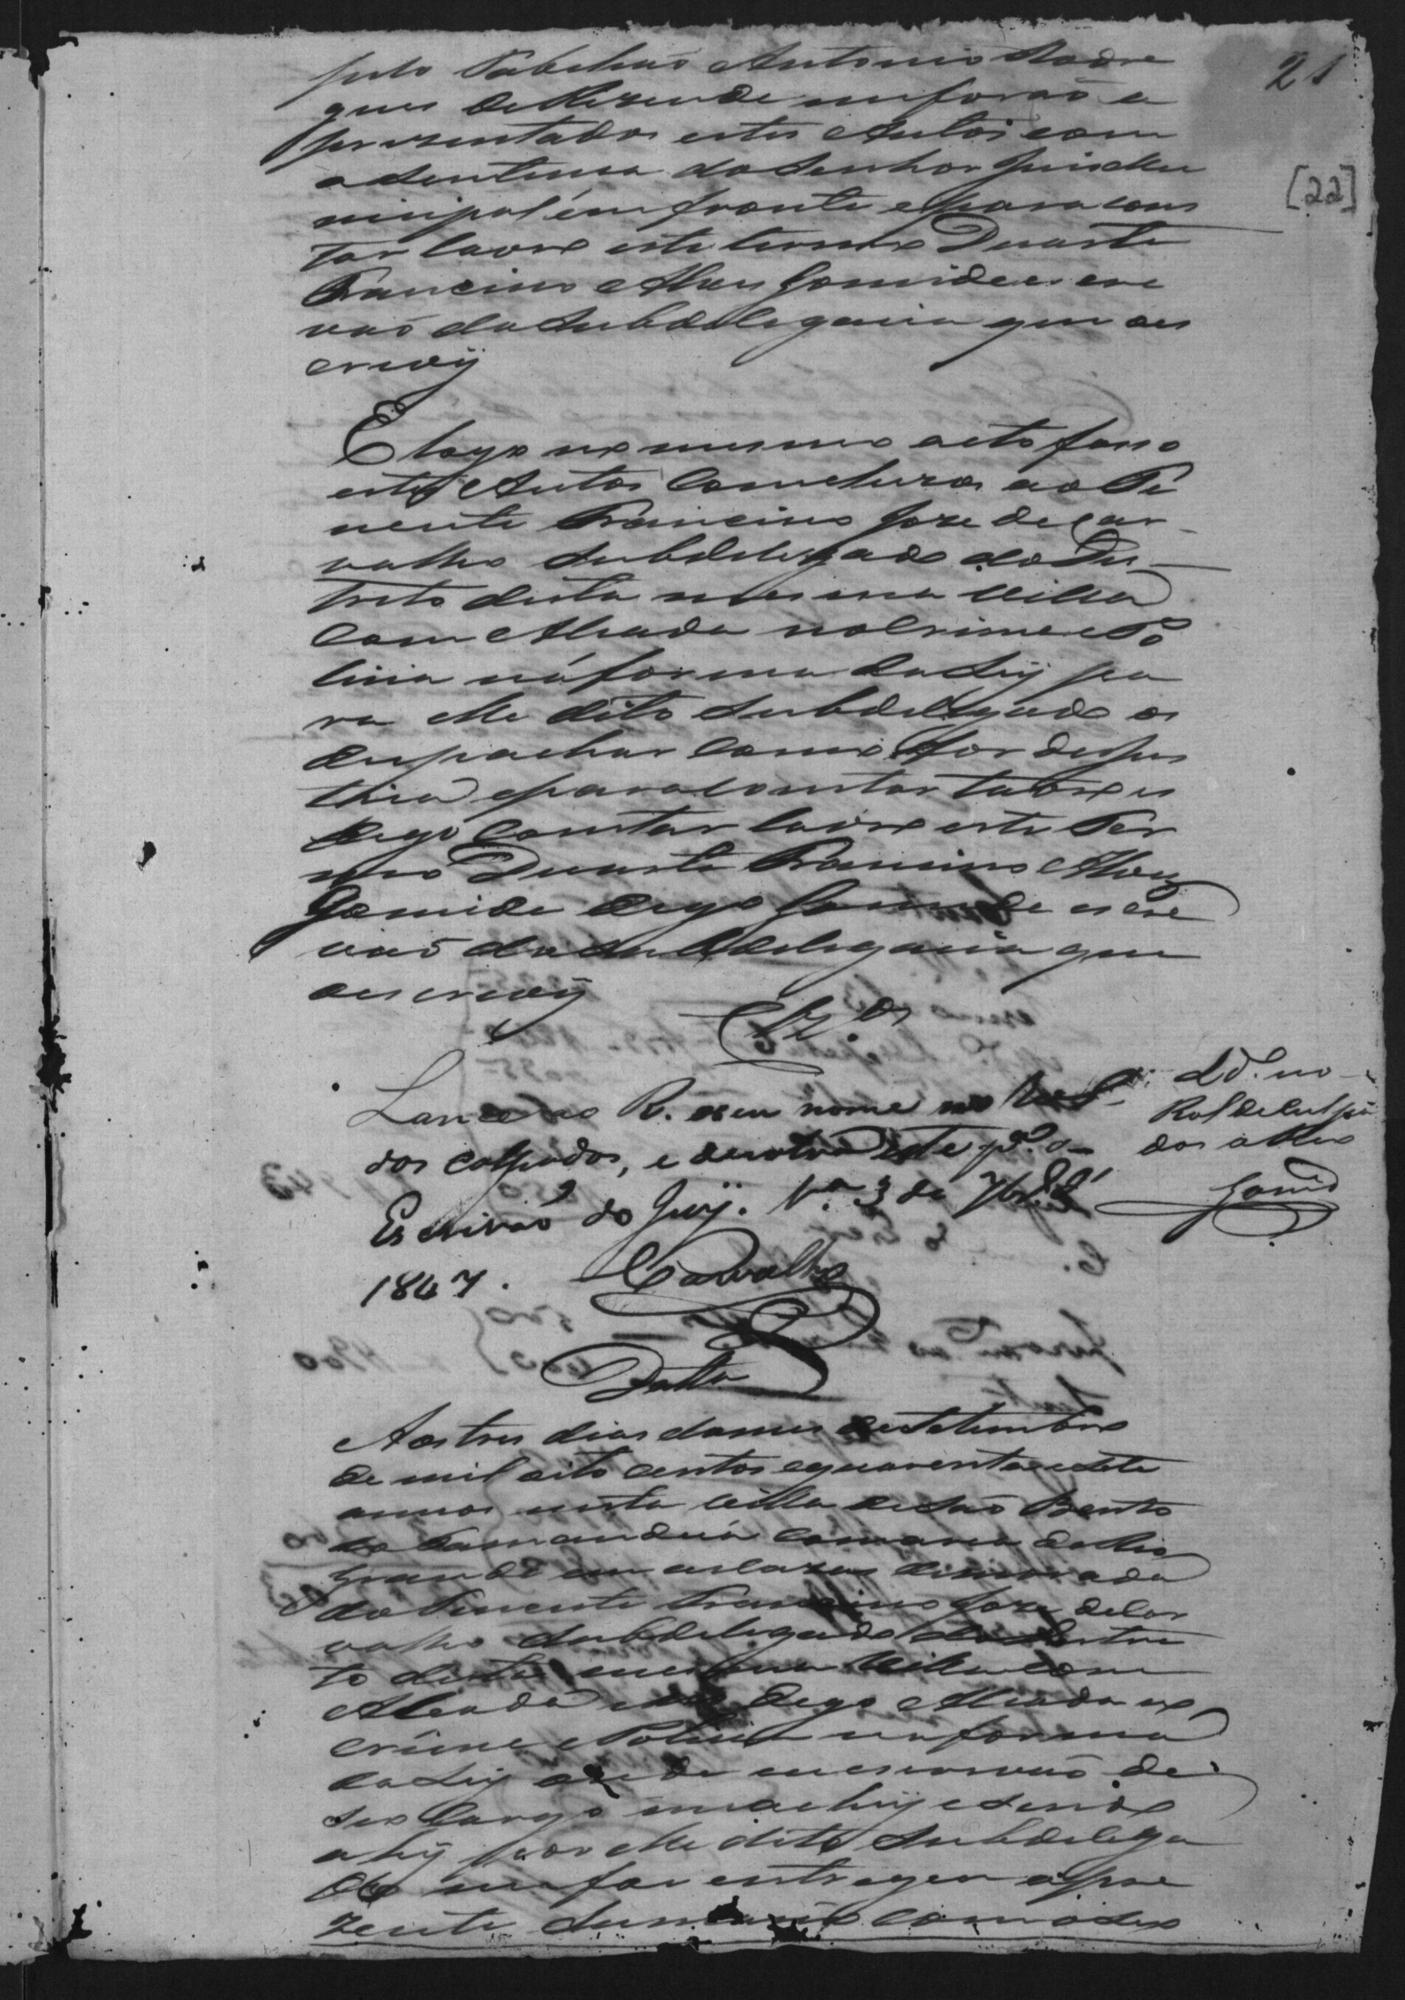 21
[22]
pelo Tabeliaõ Antonio Rodri
gues de Rezende me foraõ a
prezentados estes Autos com
a Sentença do Senhor Juis Mu
nicipal em fronte e para cons
tar lavrei este termo Duarte
Francino Alves Gomide escri
vaõ da Subdelegacia que os
crevÿ
E logo no mesmo acto faço
estes Autos Concluzos ao Te
nente Francino Joze de Car
valho Subdelegado do Dis
treto desta mesma Villa
com Alsada no Crime e Po
licia na forma da Ley pa
ra elle dito Subdelegado os
despachar como for de jus
tiça e para constar
digo constar lavrei este Ter
mo Duarte Francino Alves
Gomide digo Gomide escri
vaõ da Subdelegacia que
escrevÿ
Clz.os
Lance ao R. o seu nome no Rol
dos culpados, e devolva este p.a o
Escrivaõ do Jury. V.a 3 de 7br.o d
1847. Carvalho
L.do no
Rol de culpa
dos
Gomide
Datta
Aos tres dias do mes de Setembro
de mil oito centos e quarenta e sete
annos nesta Villa de Saõ Bento
do Tamanduá Comarca do Rio
Grande em cazas de morada
do Tenente Francino Joze de Car
valho Subdelegado do Distre
to desta mesma Villa com
Alsada digo Alsada no
crime e Policia na forma
da Ley onde eu escrivaõ de
seo Cargo me achey e sendo
ahÿ por elle dito Subdelega
do me foi entregue o pre
zente Sumario com o seo